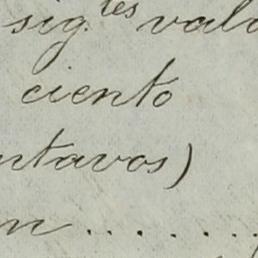 sig.tes valo
ciento
ntavos)
on.......